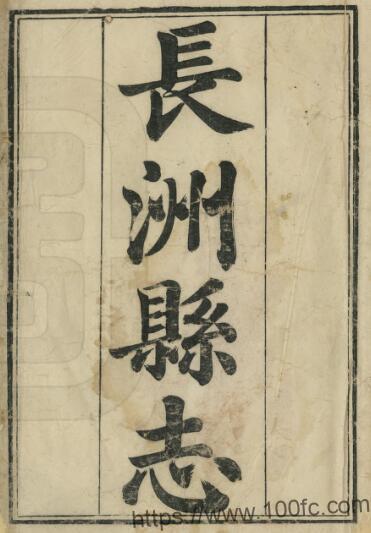 長洲縣志
https://www.100fc.com